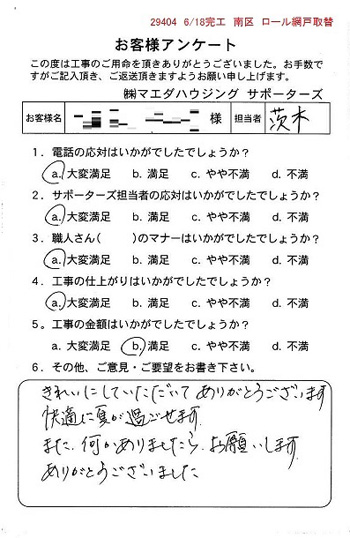 29404 6/18完工 南区 ロール網戸取替
お客様アンケート
この度は工事のご用命を頂きありがとうございました。お手数で
すがご記入頂き、ご返送頂きますようお願い申し上げます。
㈱マエダハウジング サポーターズ
お客様名 様 担当者 茨木
1．電話の応対はいかがでしたでしょうか？
a. 大変満足 b. 満足 c. やや不満 d. 不満
2．サポーターズ担当者の応対はいかがでしたでしょうか？
a. 大変満足 b. 満足 c. やや不満 d. 不満
3．職人さん( )のマナーはいかがでしたでしょうか？
a. 大変満足 b. 満足 c. やや不満 d. 不満
4．工事の仕上がりはいかがでしたでしょうか？
a. 大変満足 b. 満足 c. やや不満 d. 不満
5。工事の金額はいかがでしたでしょうか？
a. 大変満足 b. 満足 c. やや不満 d. 不満
6．その他、ご意見・ご要望をお書き下さい。
きれいにしていただいてありがとうございます
快適に夏が過ごせます.
また、何かありましたら、お願いします.
ありがとうございました